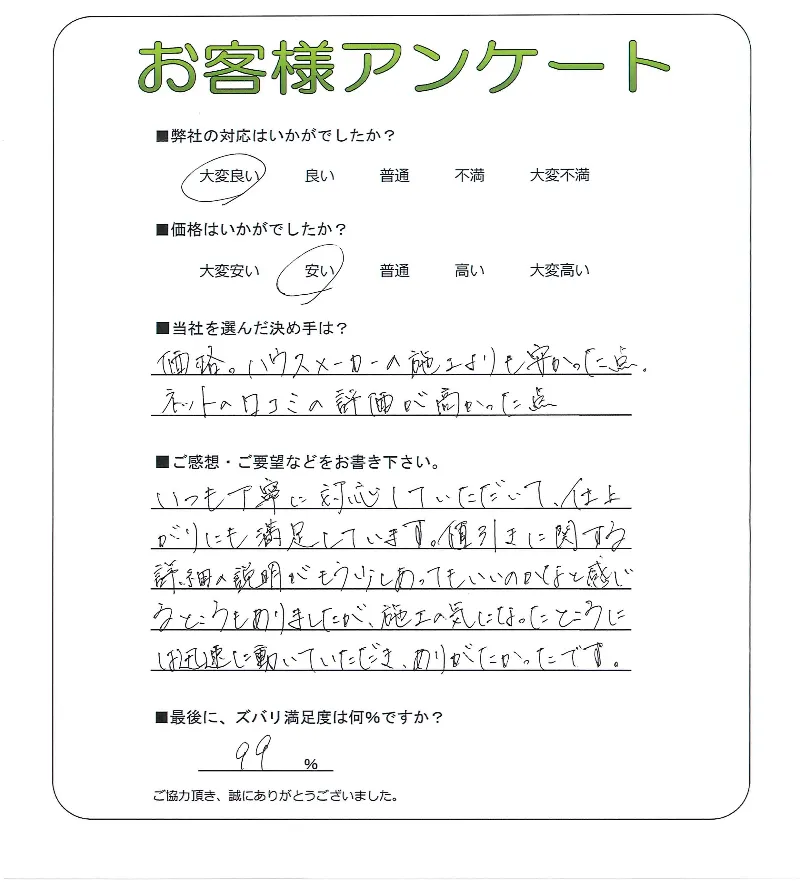 お客様アンケート
■弊社の対応はいかがでしたか?
大変良い 良い 普通 不満 大変不満
■価格はいかがでしたか?
大変安い 安い 普通 高い 大変高い
■当社を選んだ決め手は?
価格。ハウスメーカーの施工よりも安かった点。
ネットの口コミの評価が高かった点
■ご感想・ご要望などをお書き下さい。
いつも丁寧に対応していただいて、仕上
がりにも満足しています。値引きに関する
詳細の説明がもう少しあってもいいのかなと感じ
るところもありましたが、施工の気になったところに
は迅速に動いていただき、ありがたかったです。
■最後に、ズバリ満足度は何%ですか?
99 %
ご協力頂き、誠にありがとうございました。